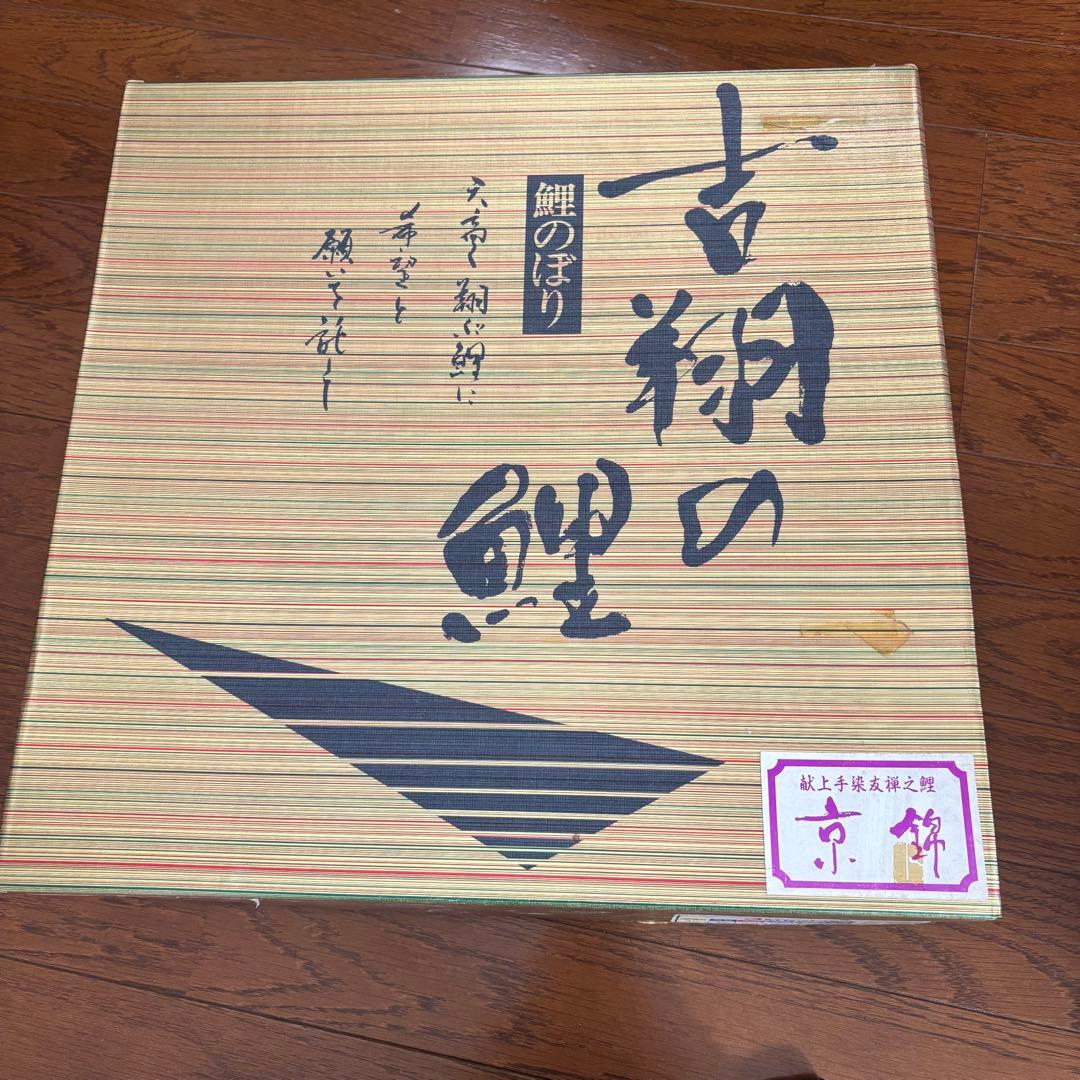 吉翔の
鯉
鯉のぼり
天高く翔ぶ鯉に
希望と
願いを託し
献上手染友禅之鯉
京錦